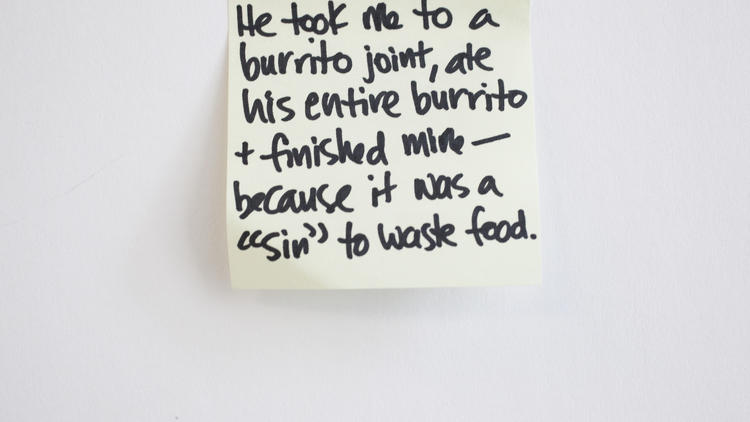 He took me to a
burrito joint, ate
his entire burrito
+ finished mine —
because it was a
“sin” to waste food.